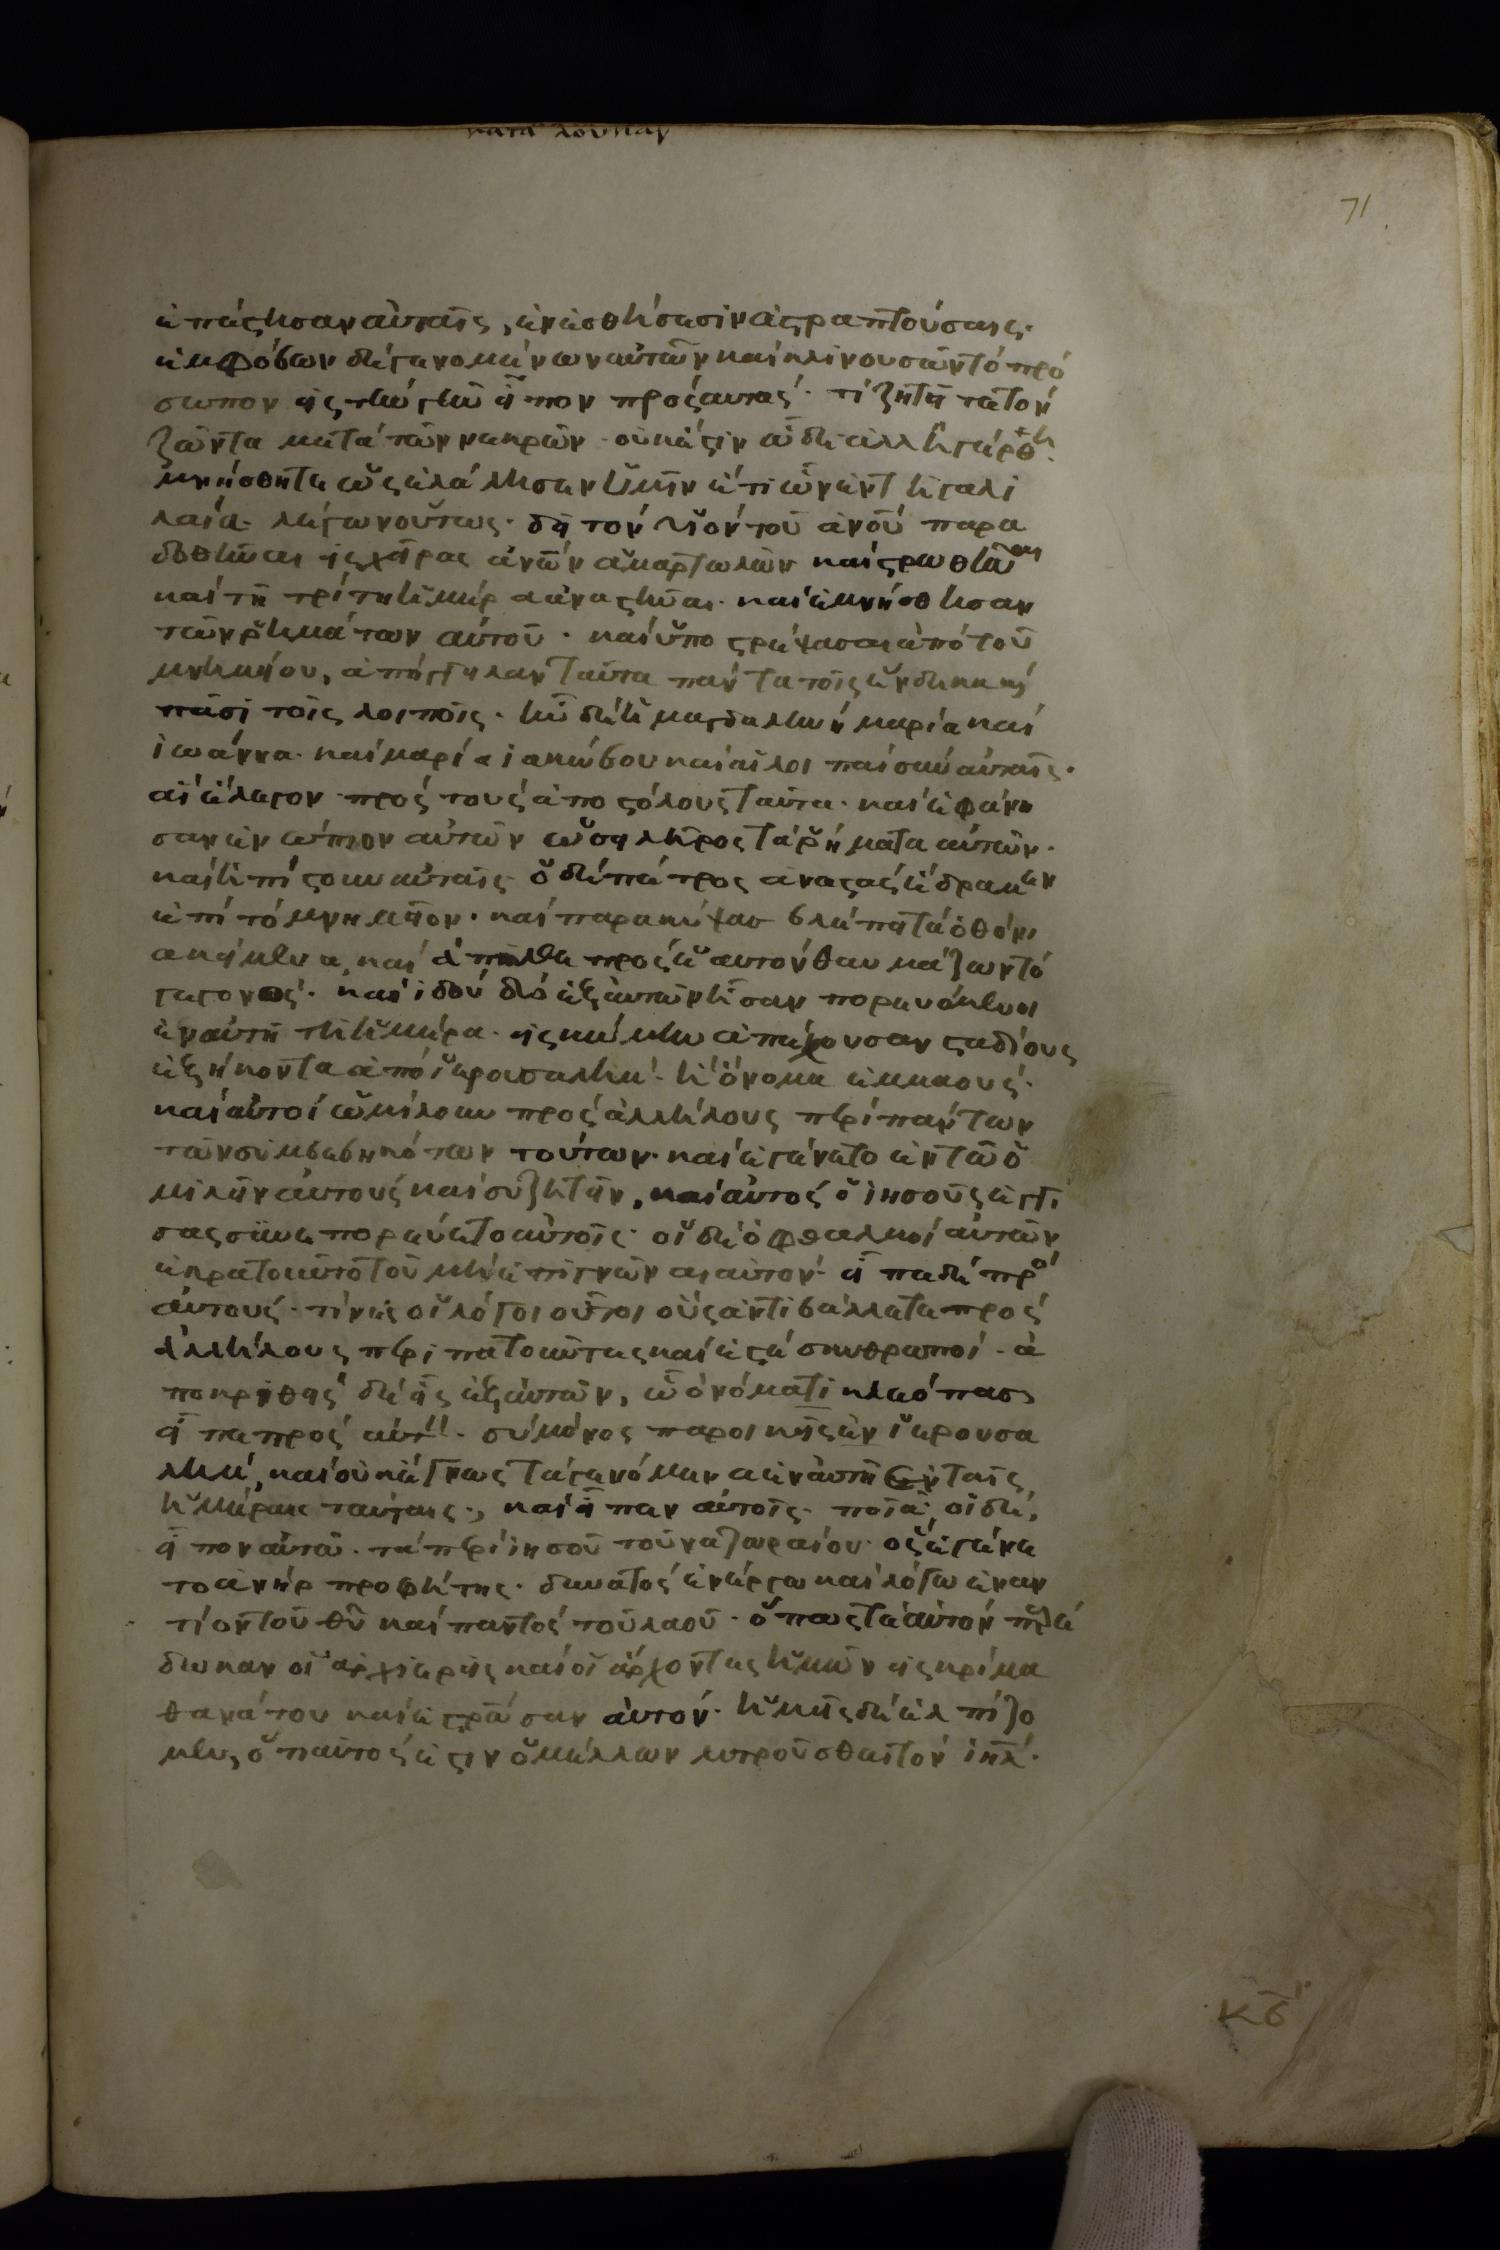 κατα λουκαν
71
ἐπέστησαν αὐταῖς, ἐν ἐσθήσεσιν ἀστραπτούσαις·
ἐμφόβων δὲ γενομένων αὐτῶν καὶ κλινουσῶν τὸ πρό
σωπον εἰς τὴν γῆν εἶπον πρὸς αὐτάς· τί ζητεῖτε τὸν
ζῶντα μετὰ τῶν νεκρῶν· οὐκ ἔστιν ὧδε ἀλλ ἠγέρθη·
μνήσθητε ὡς ἐλάλησεν ὑμῖν ἔτι ὢν ἐν τῇ γαλι
λαία· λέγων οὕτως· δεῖ τὸν υἱὸν τοῦ ἀνοῦ παρα
δοθῆναι εἰς χεῖρας ἀνῶν ἁμαρτωλῶν καὶ στρωθῆναι
καὶ τῇ τρίτη ἡμέρα ἀναστῆναι· καὶ ἐμνήσθησαν
τῶν ῥημάτων αὐτοῦ· καὶ ὑποστρέψασαι ἀπὸ τοῦ
μνημείου, ἀπήγγειλαν ταῦτα πάντα τοῖς ἕνδεκα καὶ
πᾶσι τοῖς λοιποῖς· ἦν δὲ ἡ μαγδαληνὴ μαρία καὶ
ἰωάννα· καὶ μαρία ἰακώβου καὶ αἱ λοιπαὶ σὺν αὐταῖς·
αἳ ἔλεγον πρὸς τοὺς ἀποστόλους ταῦτα· καὶ ἐφάνη
σαν ἐνώπιον αὐτῶν ὡσεὶ λῆρος τὰ ῥήματα αὐτῶν·
καὶ ἠπίστουν αὐταῖς· ὁ δὲ πέτρος ἀναστὰς ἔδραμεν
ἐπὶ τὸ μνημεῖον· καὶ παρακύψας βλέπει τὰ ὀθόνι
α κείμενα, καὶ ἀπῆλθε πρὸς ἑαυτὸν θαυμάζων τὸ
γεγονός· καὶ ἰδοὺ δύο ἐξ αὐτῶν ἦσαν πορευόμενοι
ἐν αὐτῇ τῇ ἡμέρα· εἰς κώμην ἀπέχουσαν σταδίους
ἑξήκοντα ἀπὸ ἱερουσαλήμ· ἧ ὄνομα ἐμμαούς·
καὶ αὐτοὶ ὡμίλουν πρὸς ἀλλήλους περὶ πάντων
τῶν συμβεβηκότων τούτων· καὶ ἐγένετο ἐν τῶ ὁ
μιλεῖν αὐτοὺς καὶ συζητεῖν, καὶ αὐτὸς ὁ ἰησοῦς ἐγγί
σας συνεπορεύετο αὐτοῖς· οἱ δὲ ὀφθαλμοὶ αὐτῶν
ἐκρατοῦντο τοῦ μὴ ἐπιγνῶναι αὐτόν· εἶπε δὲ πρὸ
αὐτούς· τίνες οἱ λόγοι οὗτοι οὓς ἀντιβάλλετε πρὸς
ἀλλήλους περιπατοῦντες καὶ ἐστὲ σκυθρωποί· ἀ
ποκριθεὶς δὲ εἷς ἐξ αὐτῶν, ὧ ὀνόματι κλεόπας
εἶπε πρὸς αὐτὸν· σὺ μόνος παροικεῖς ἐν ἱερουσα
λήμ, καὶ οὐκ ἔγνως τὰ γενόμενα ἐν αὐτῇ ἐν ταῖς
ἡμέραις ταύταις·, καὶ εἶπεν αὐτοῖς· ποῖα; οἱ δὲ,
εἶπον αὐτῶ· τὰ περὶ ἰησοῦ τοῦ ναζωραίου· ὃς ἐγένε
το ἀνὴρ προφήτης· δυνατὸς ἐν ἔργω καὶ λόγω ἐναν
τίον τοῦ θῦ καὶ παντὸς τοῦ λαοῦ· ὅπως τε αὐτὸν παρέ
δωκαν οἱ ἀρχιερεῖς καὶ οἱ ἄρχοντες ἡμῶν εἰς κρίμα
θανάτου καὶ ἐστρωσαν αὐτόν· ἡμεῖς δὲ ἐλπίζο
μεν, ὅτι αὐτός ἐστιν ὁ μέλλων λυτροῦσθαι τὸν ἰηλ·
κδ